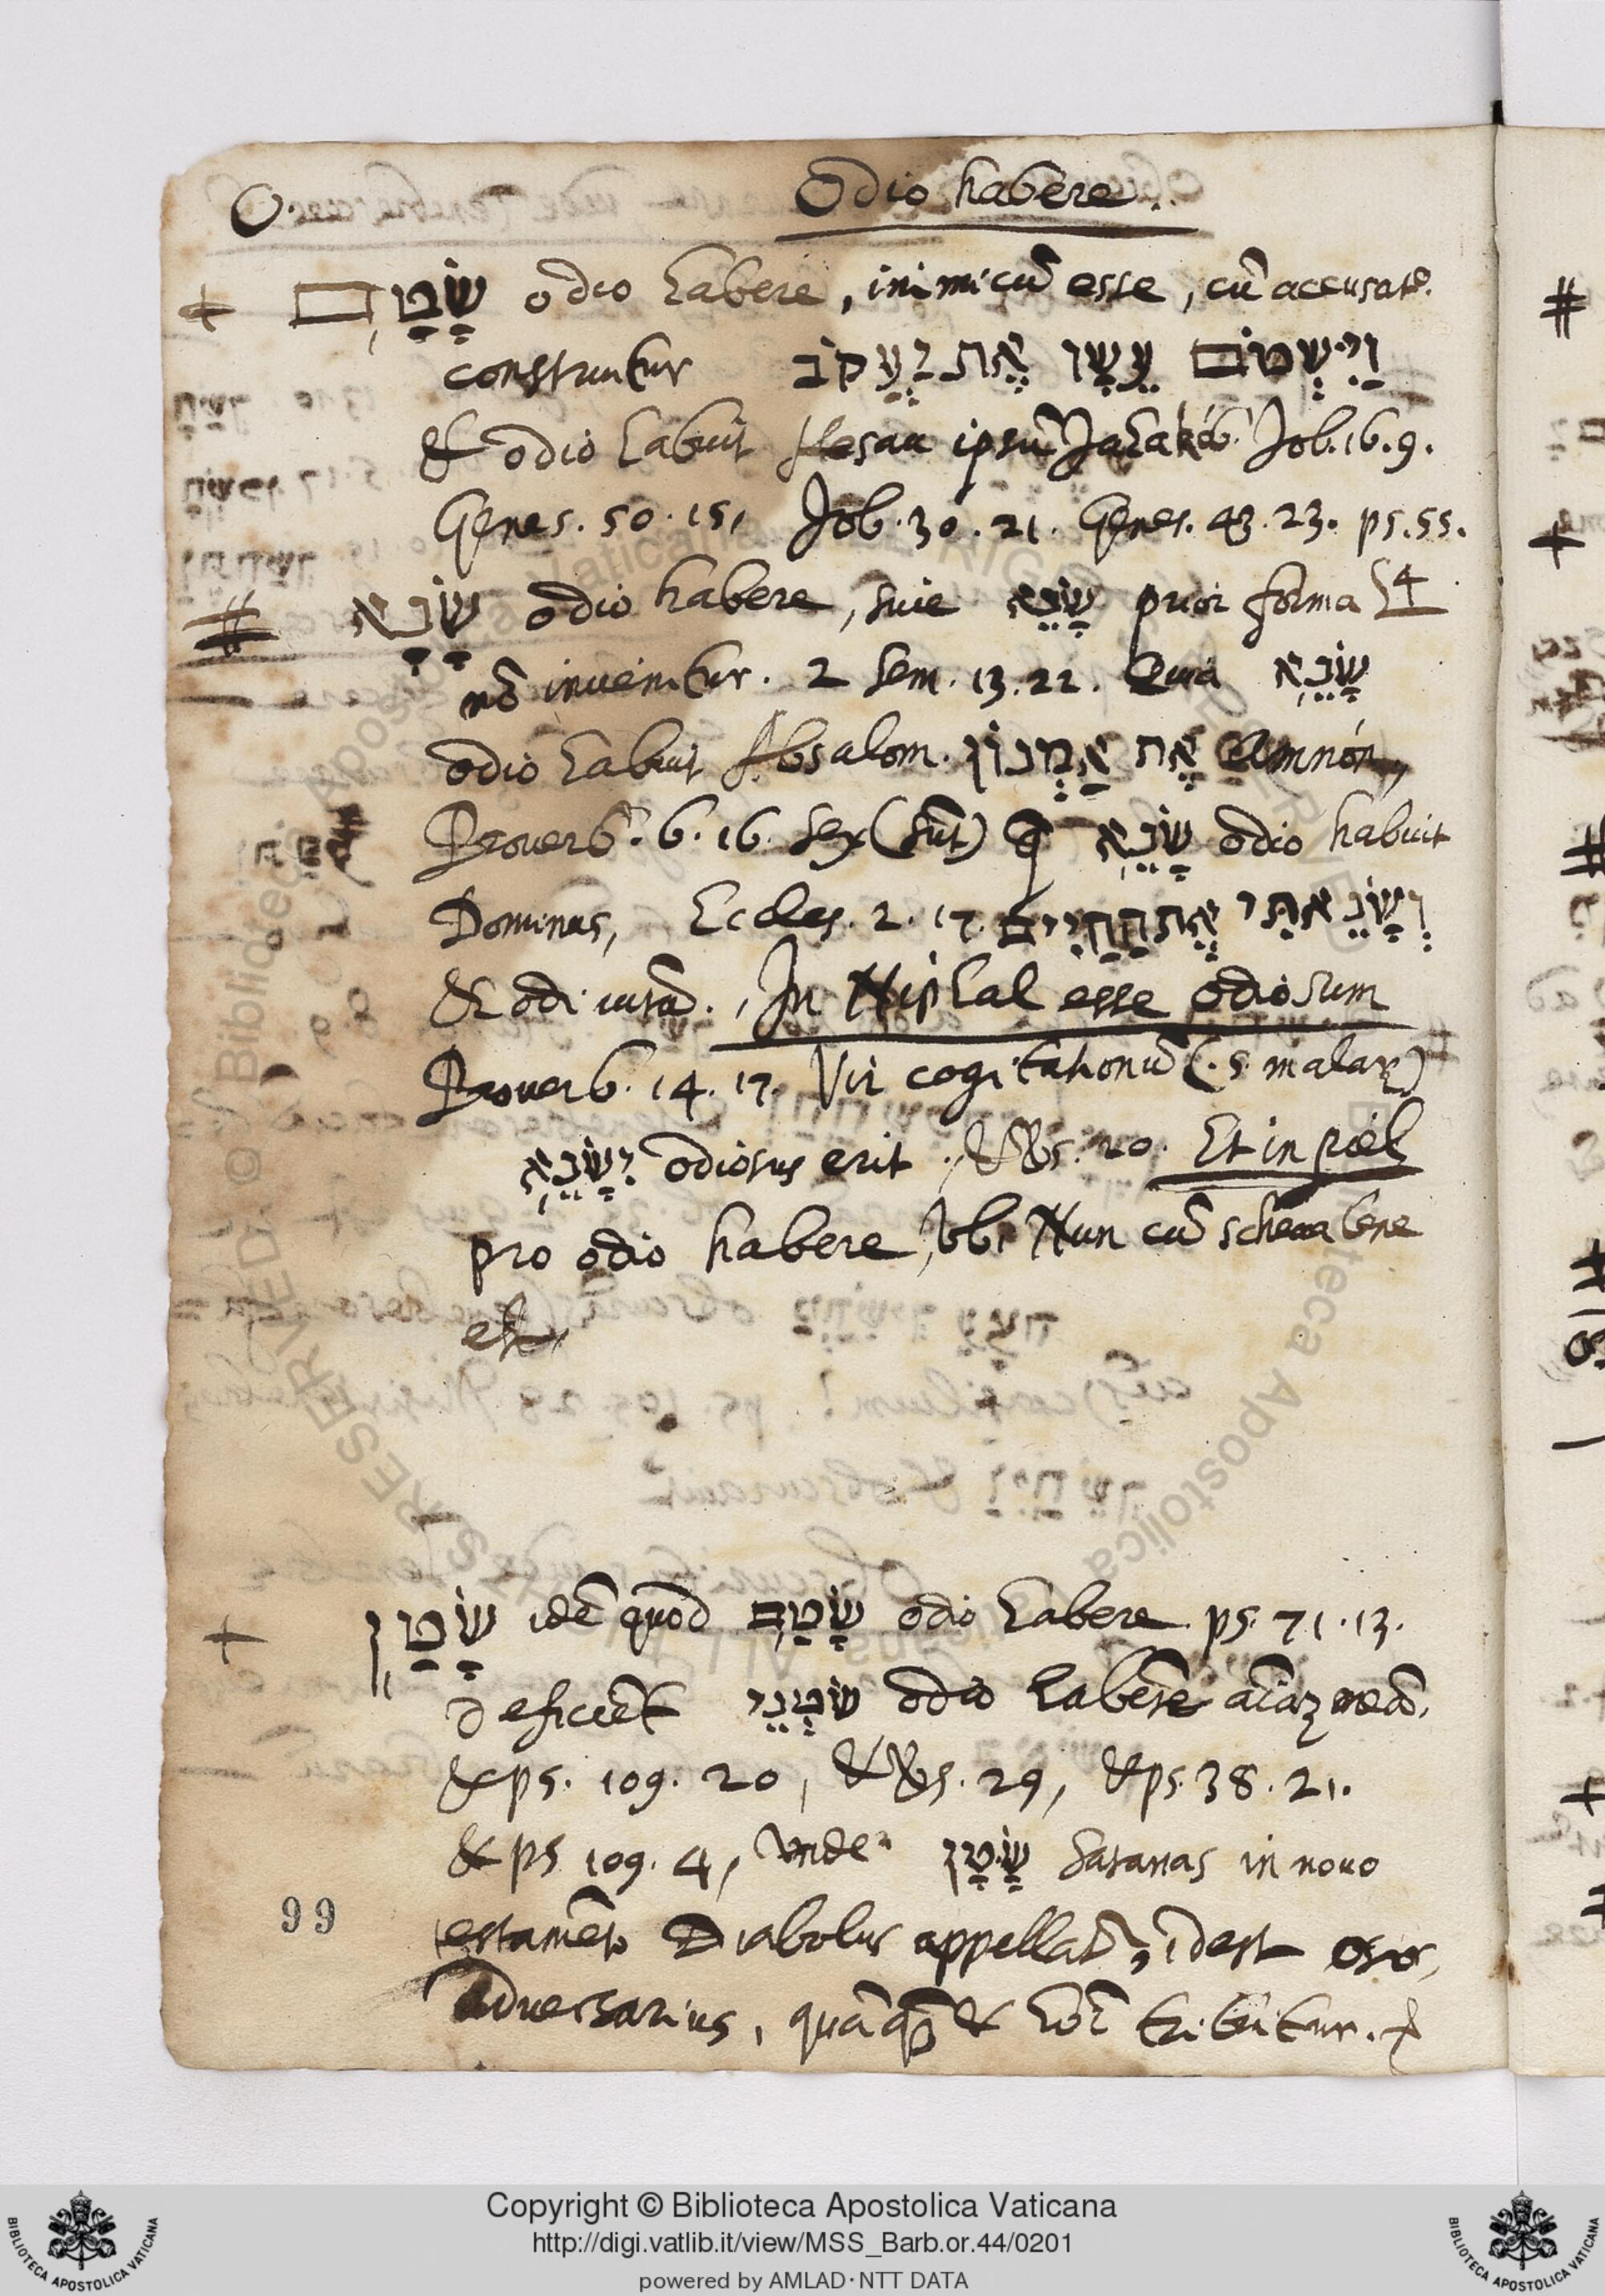 O. Odio habere.
+ שָׂטַם odio habere, inimicũ esse, cũ accusate.
construitur וַיִשְׂטוֹם עֵשָׂו אֶת יַעֲקֹב
& odio habuit Hesau ipsũ Jahakób. Job. 16. 9.
Genes. 50. 15, Job. 30. 21. Genes. 43. 23. ps. 55.
# שָׂנָא odio habere, siue שָׂנֵא prior forma 4
nõ inuenitur. 2 Sem. 13. 22. Quia שָׂנֵא
odio habuit Absalom. אֶת אַמְנוֹן Amnón,
Prouerb. 6. 16. Sex (sũt) שָׂנֵא odio habuit
Dominus, Eccles. 2. 17. וְשָׂנֵאתִי אֶת הַחַיִים
& odi uitã. In Niphal esse odiosum
Prouerb. 14. 17. Vir cogitationũ (.s. malaꝝ)
יִשָׂנֵא odiosus erit, & Vs. 20. Et in piel
pro odio habere, vbi Nun cũ scheua bene
est,
+ שָׂטַן idẽ quod שָׂטַם odio habere ps. 71. 13.
deficiẽt שׂטְנֵי odio habẽte aĩaꝫ meã,
& ps. 109. 20, & Vs. 29, & ps. 38. 21.
& ps 109. 4, Vnde שָׂטָן Satanas in nouo
testamẽto Diabolus appellat, idest osor,
Aduersarius, tribuitur.
99
Copyright © Biblioteca Apostolica Vaticana
http://digi.vatlib.it/view/MSS_Barb.or.44/0201
powered by AMLAD · NTT DATA
BIBLIOTECA APOSTOLICA VATICANA
BIBLIOTECA APOSTOLICA VATICANA